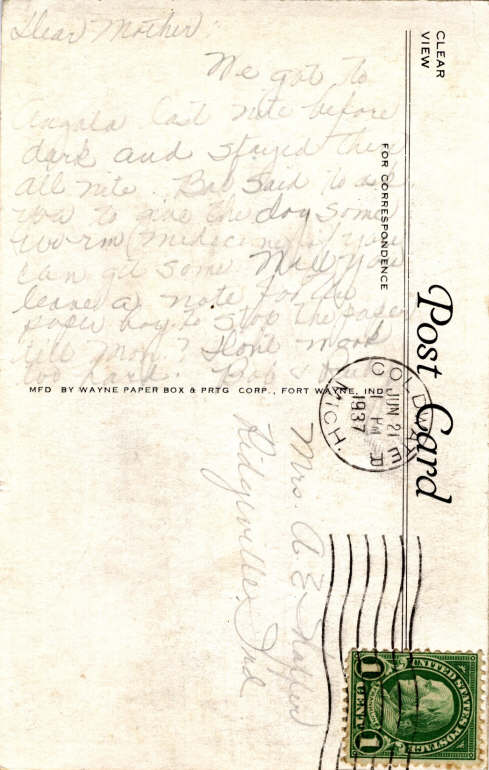 Dear Mother:
We got to
Angola last nite before
dark and stayed there
all nite. Bob said to ask
you to give the dog some
worm (medecine) if you
can get some. Will you
leave a note for the
paper boy to stop the paper
till Mon? Don't work
too hard. Bob &
CLEAR
VIEW
FOR CORRESPONDENCE
Post Card
MFD BY WAYNE PAPER BOX & PRTG CORP., FORT WAYNE, IND
COLDWATER
JUN 21
1 PM
1937
MICH.
D
Mrs. A. E.
Ridgeville, Ind
UNITED STATES POSTAGE
1 CENT 1